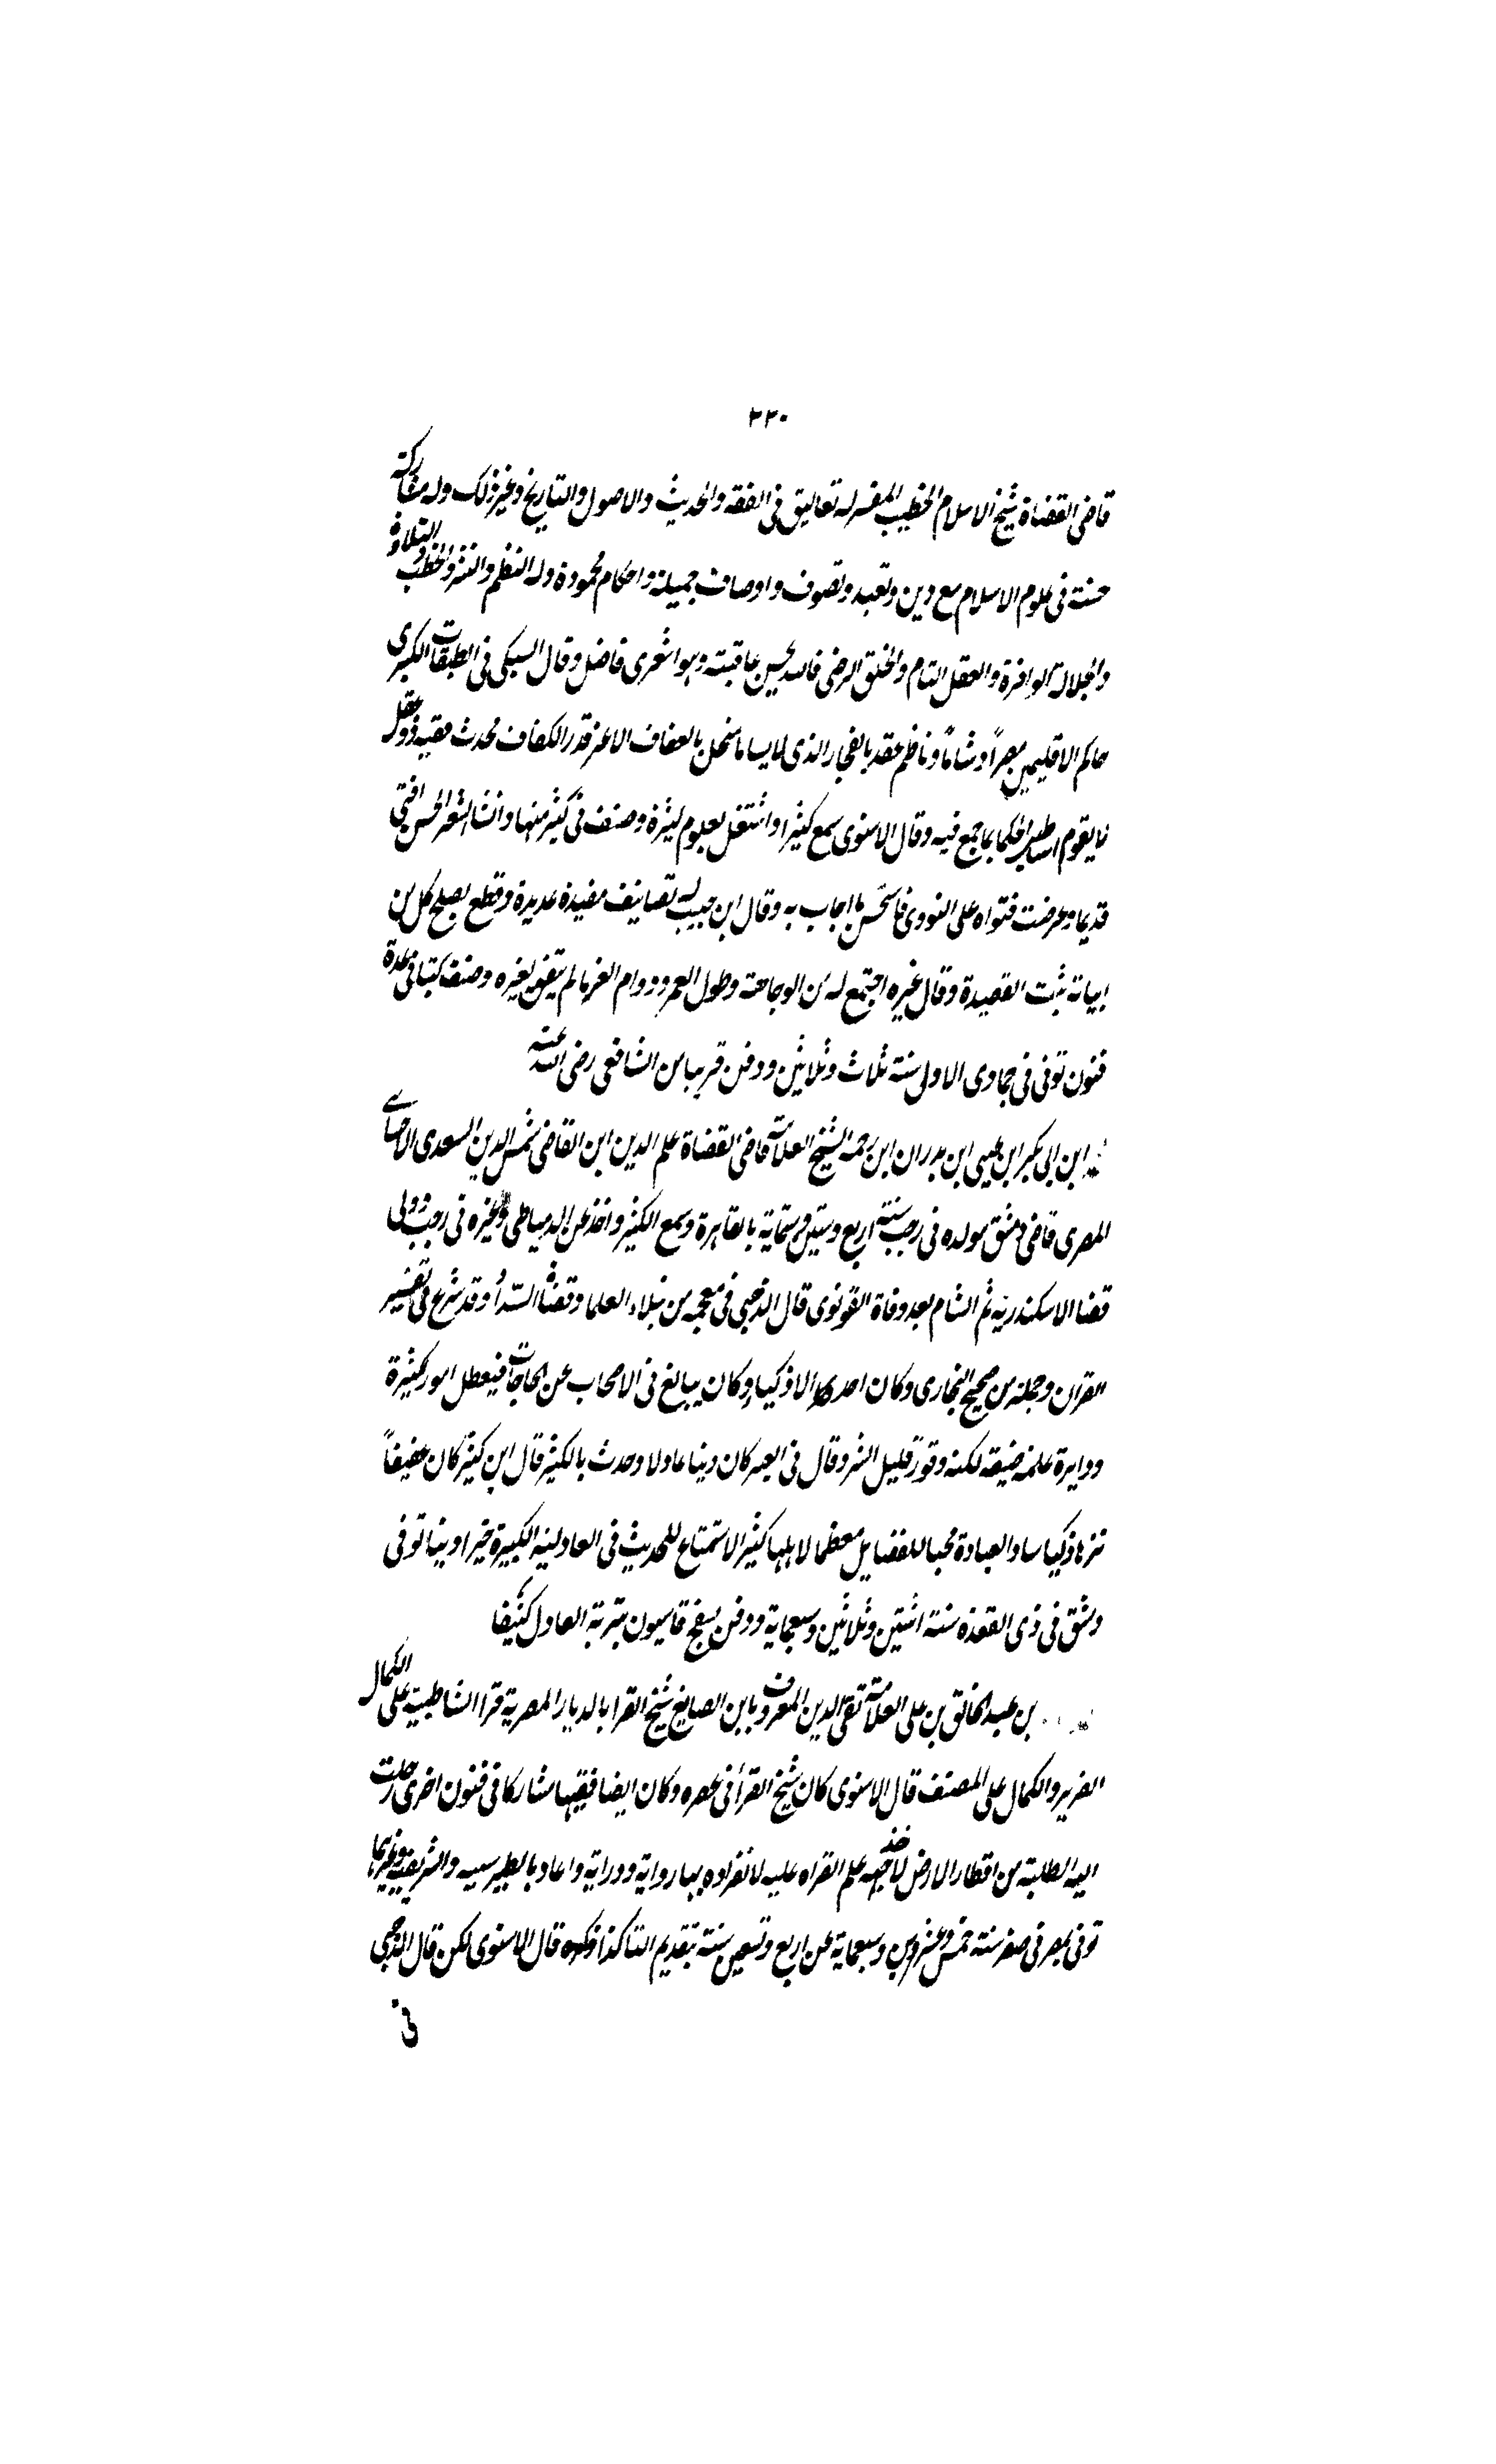 ٢٢٠
قاضى القضاة شيخ الاسلام الخطيب المفسر له تعاليق فى الفقه والحديث والاصول والتاريخ وغير ذلك وله مشاركة
حسنة فى علوم الاسلام مع دين وتعبد وتصوف واوصاف جميلة واحكام محمودة وله النظم والنثر والخطب والتلاوة
والجلالة الوافرة والعقل التام والخلق الرضى فالله يحسن عاقبته وهو اشعرى فاضل وقال السبكى فى الطبقات الكبرى
حاكم الاقليمين مصراً وشاماً وناظم عقد الفخار الذى لا يساما متحل بالعفاف الا عن قدر الكفاف محدث فقيه ذو عقل
لا يقوم اساطين الحكما بما جمع فيه وقال الاسنوى سمع كثيرا واشتغل بعلوم كثيرة وصنف فى كثير منها وانشا الشعر الحسن افتى
قديما وعرضت فتواه على النووى فاستحسن ما اجاب به وقال ابن حبيب له تصانيف مفيدة عديدة وقطع يصلح كل من
ابياته بيت القصيدة وقال غيره اجتمع له من الوجاهة وطول العمر ودوام العز ما لم يتفق لغيره وصنف كتبا فى عدة
فنون توفى فى جمادى الاول سنة ثلاث وثلاثين ودفن قريبا من الشافعى رضى الله عنه
ابن ابى بكر ابن عيسى ابن بدران ابن رحمة الشيخ العلامة قاضى القضاة علم الدين ابن القاضى شمس الدين السعدى الاخناى
المصرى قاضى دمشق مولده فى رجب سنة اربع وستين وستماية بالقاهرة وسمع الكثير واخذ عن الدمياطى وغيره فى رجب وولى
قضا الاسكندرية ثم الشام بعد وفاة القونوى قال الذهبى فى معجمه من نبلاء العلما وقضاة السدا وقد شرع فى تفسير
القران وجملة من صحيح البخارى وكان احد الاذكيا وكان يبالغ فى الاحتجاب عن الحاجات فيتعطل امور كثيرة
ودايرة علمه ضيقة لكنه وقور قليل الشر وقال فى العبر كان دينا عادلا وحدث بالكثير قال ابن كثير كان عفيفاً
نزها ذكيا ساد العبادة محبا للفضايل معظما لاهلها كثير الاستمتاع للحديث فى العادلية الكبيرة خيرا دينا توفى
دمشق فى ذى القعدة سنة اثنتين وثلاثين وسبعماية ودفن بسفح قاسيون بتربة العادل كتبغا
بن عبد الخالق بن على العلامة تقى الدين المعروف بابن الصايغ شيخ القرا بالديار المصرية قرا الشاطبية على الكمال
الضرير والكمال على المصنف قال الاسنوى كان شيخ القرأ فى عصره وكان ايضا فقيها مشاركا فى فنون اخرى رحلت
اليه الطلبة من اقطار الارض لاخذ علم القراه عليه لانفراده بها رواية ودراية واعاد بالطيبرسية والشريفية وغيرهما
توفى بمصر فى صفر سنة خمس وعشرين وسبعماية عن اربع وتسعين سنة بتقديم التا كذا ذكره قال الاسنوى لكن قال الذهبى
فى